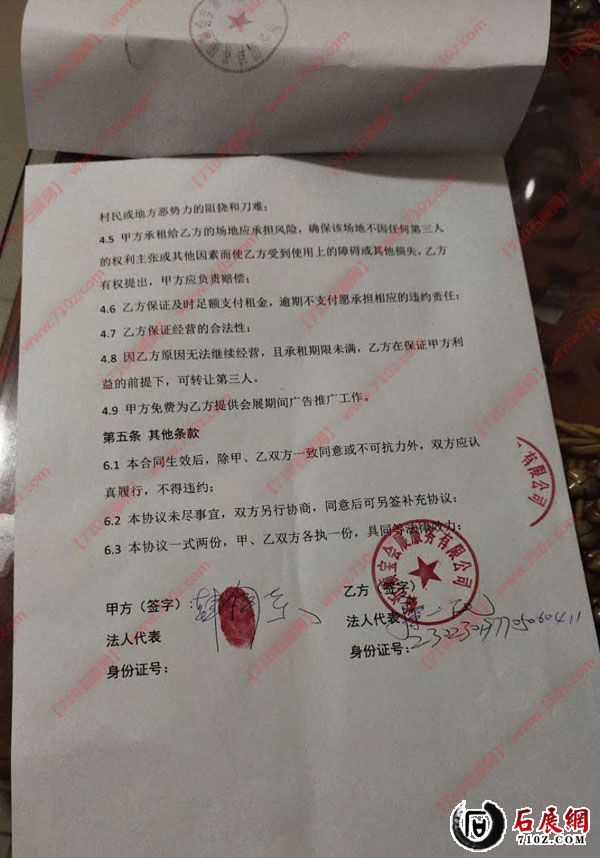 村民或地方恶势力的阻挠和刀难；
4.5 甲方承租给乙方的场地应承担风险，确保该场地不因任何第三人
的权利主张或其他因素而使乙方受到使用上的障碍或其他损失，乙方
有权提出，甲方应负责赔偿；
4.6 乙方保证及时足额支付租金，逾期不支付愿承担相应的违约责任；
4.7 乙方保证经营的合法性；
4.8 因乙方原因无法继续经营，且承租期限未满，乙方在保证甲方利
益的前提下，可转让第三人。
4.9 甲方免费为乙方提供会展期间广告推广工作。
第五条 其他条款
6.1 本合同生效后，除甲、乙双方一致同意或不可抗力外，双方应认
真履行，不得违约；
6.2 本协议未尽事宜，双方另行协商，同意后可另签补充协议；
6.3 本协议一式两份，甲、乙双方各执一份，具同等法律效力；
有限公司
宝会展服务有限公司
甲方（签字）：
乙方（签字）
法人代表
法人代表
身份证号：
身份证号：
【710石展网】
www.710z.com
石展網
710Z.COM